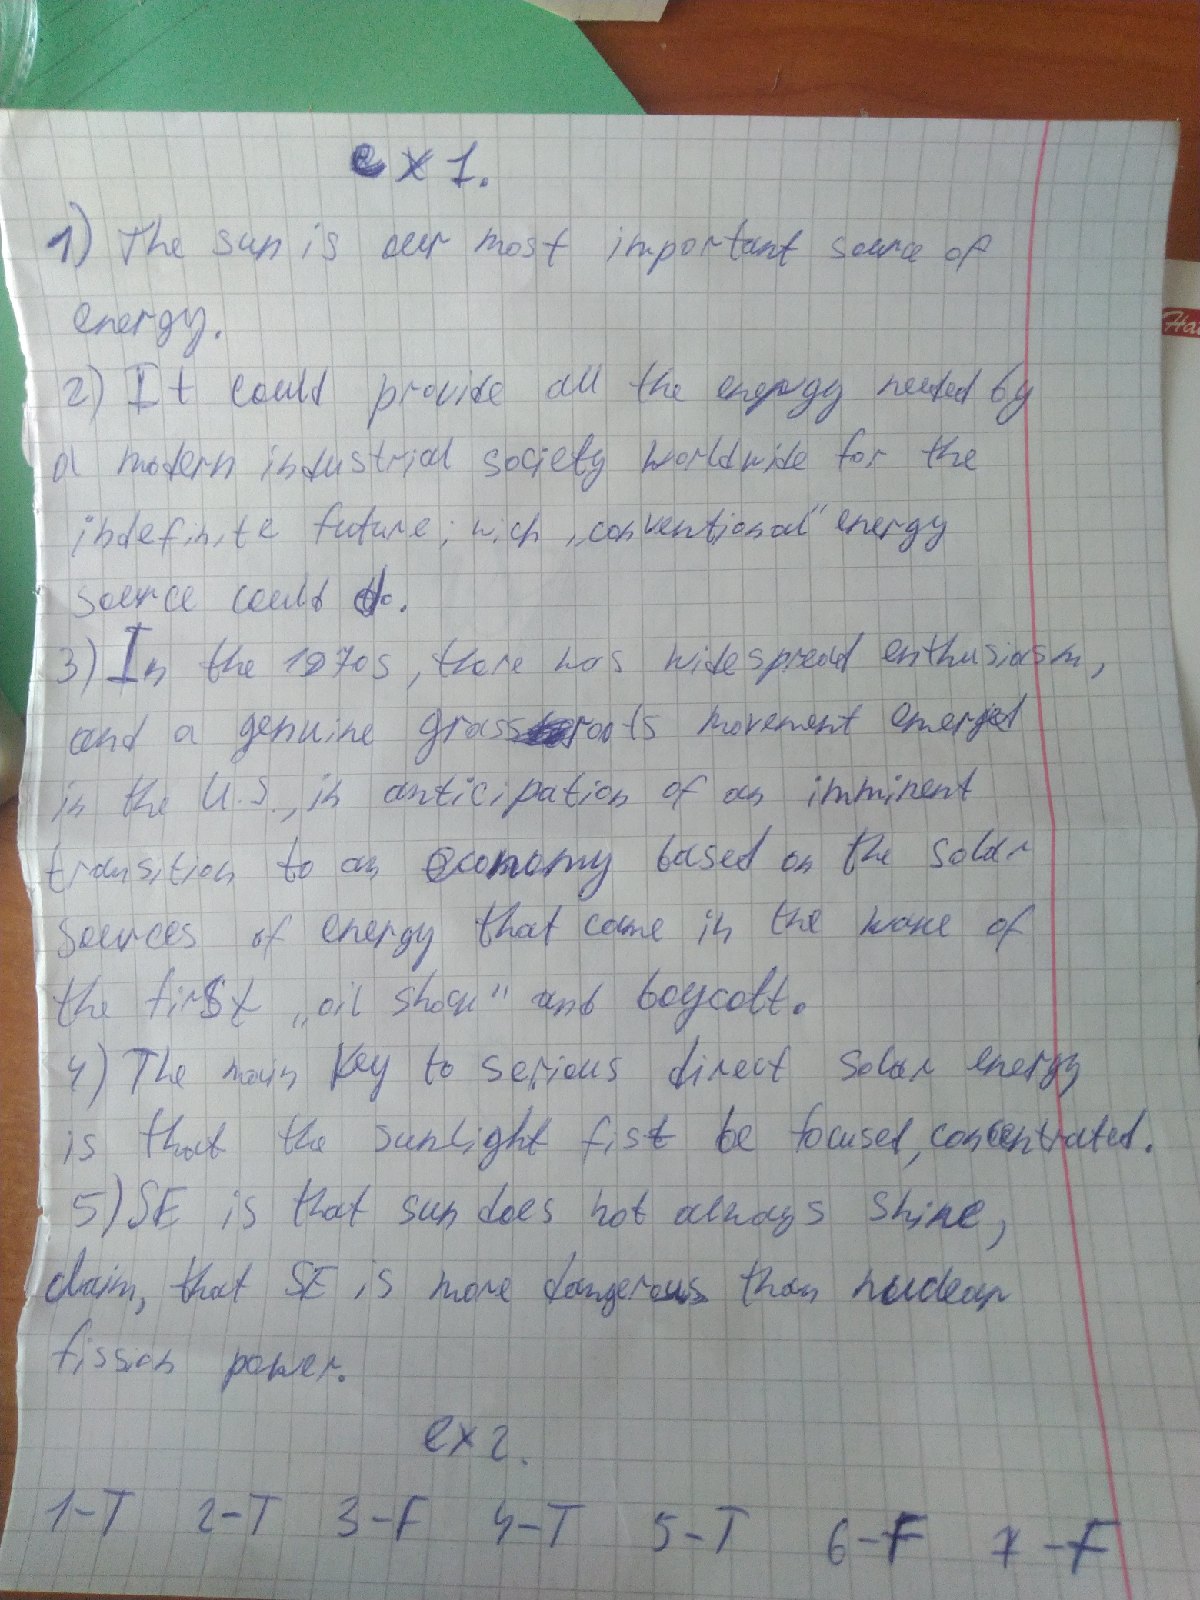 ex 1.
1) The sun is our most important source of
energy.
2) It could provide all the energy needed by
a modern industrial society worldwide for the
indefinite future; wich „conventional" energy
source could do.
3) In the 1970s, there was widespread enthusiasm,
and a genuine grassroots movement emerged
in the U.S., in anticipation of an imminent
transition to an economy based on the solar
sources of energy that came in the wake of
the first „oil shock" and boycott.
4) The main key to serious direct solar energy
is that the sunlight fist be focused, concentrated.
5) SE is that sun does not always shine,
claim, that SE is more dangerous than nuclear
fission power.
ex 2.
1-T 2-T 3-F 4-T 5-T 6-F 7-F